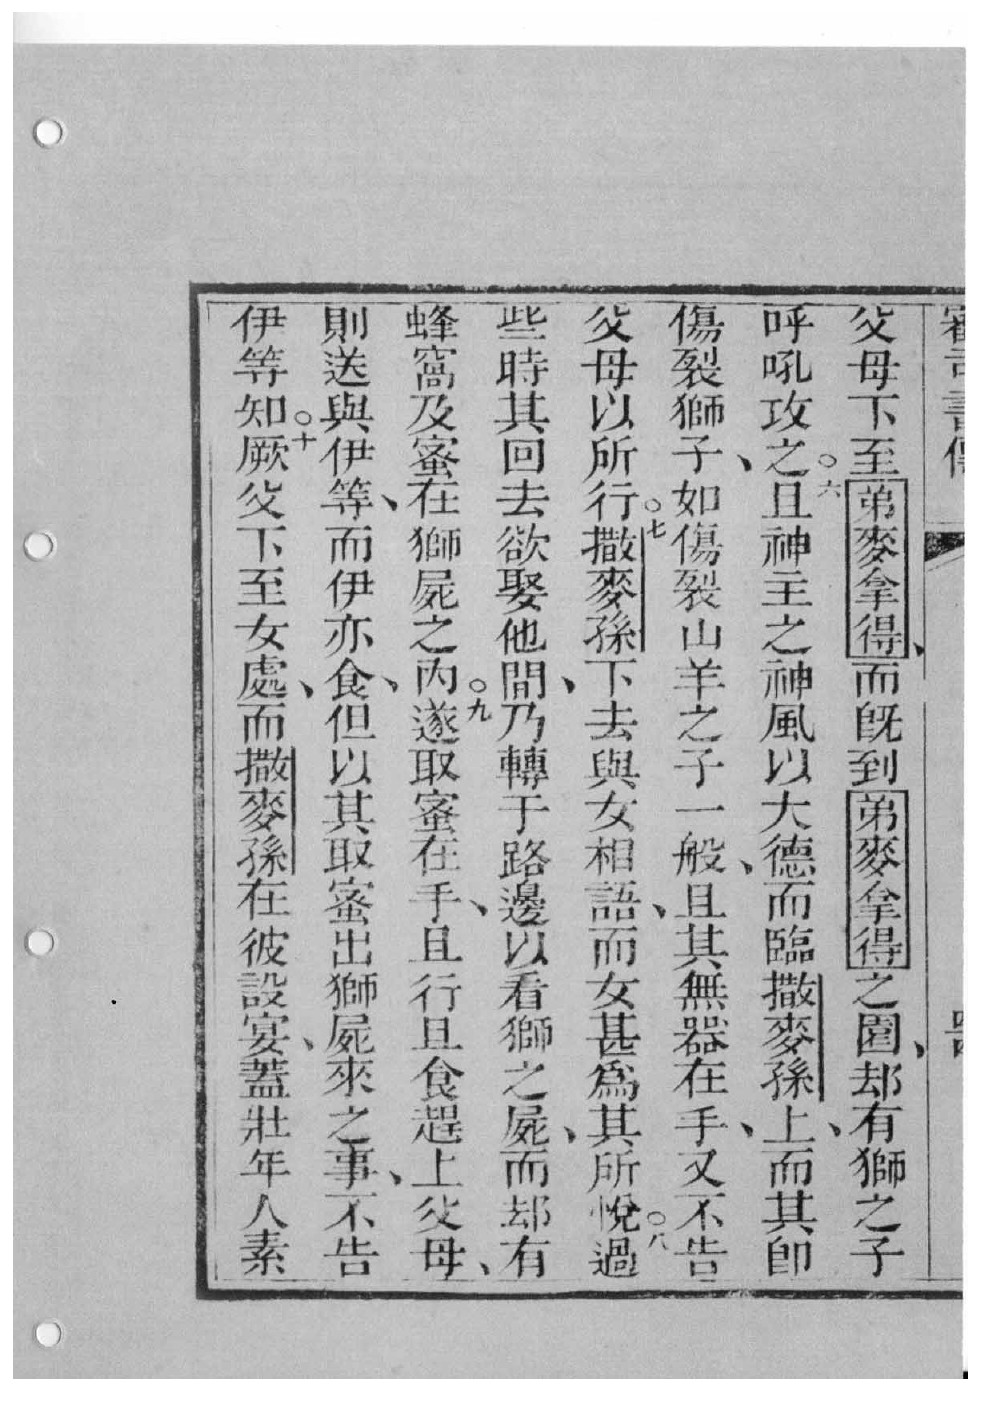 審司書傳
父母下至弟麥拿得、而旣到弟麥拿得之園、却有獅之子
呼吼攻之○六且神主之神風以大德而臨撒麥孫上、而其卽
傷裂獅子、如傷裂山羊之子一般、且其無器在手、又不告
父母以所行○七撒麥孫下去與女相語、而女甚爲其所悅○八過
些時其回去欲娶他間、乃轉于路邊以看獅之屍、而却有
蜂窩及蜜在獅屍之內○九遂取蜜在手、且行且食趕上父母、
則送與伊等、而伊亦食、但以其取蜜出獅屍來之事、不告
伊等知○十厥父下至女處、而撒麥孫在彼設宴、蓋壯年人素